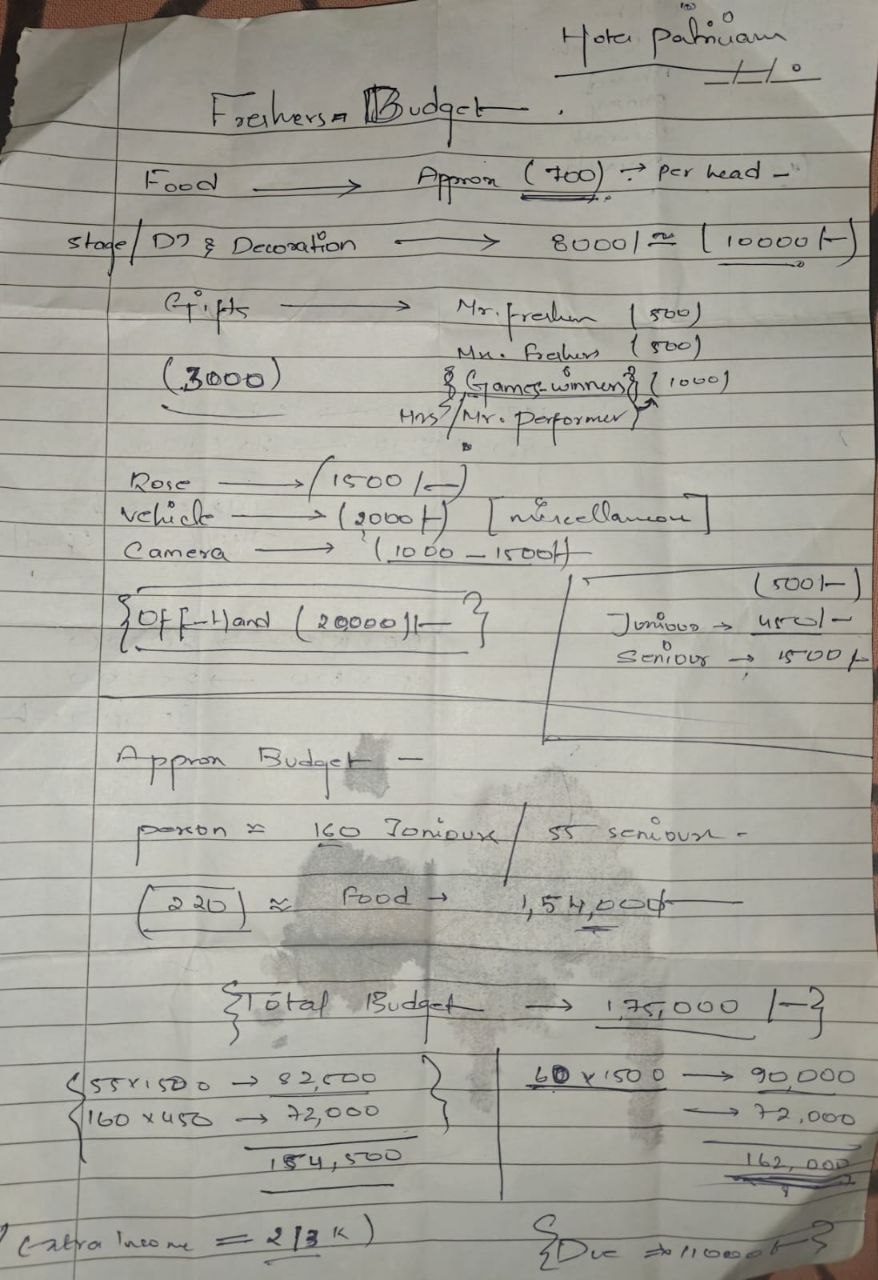 Hotel Patnivam
Freshers Budget
Food → Approx (700) → per head -
Stage/DJ & Decoration → 8000/≈ (10000/-)
Gifts → Mr. freshen (500)
Mrs. freshers (500)
(3000) {Games winners} (1000)
Mrs/Mr. performer}
Rose → (1500/-)
Vehicle → (2000/-) [miscellaneous]
Camera → (1000 - 1500/-)
(500/-)
{Off-Hand (20,000)/-} Joniour → 450/-
Seniour → 1500/-
Approx Budget -
person ≈ 160 Joniours / 55 seniours -
(220) ≈ food → 1,54,000/-
{Total Budget → 1,75,000/-}
{55x1500 → 82,500} 60x1500 → 90,000
{160x450 → 72,000} → 72,000
154,500 162,000
(extra Income = 2/3 K) {Due → 11000/-}